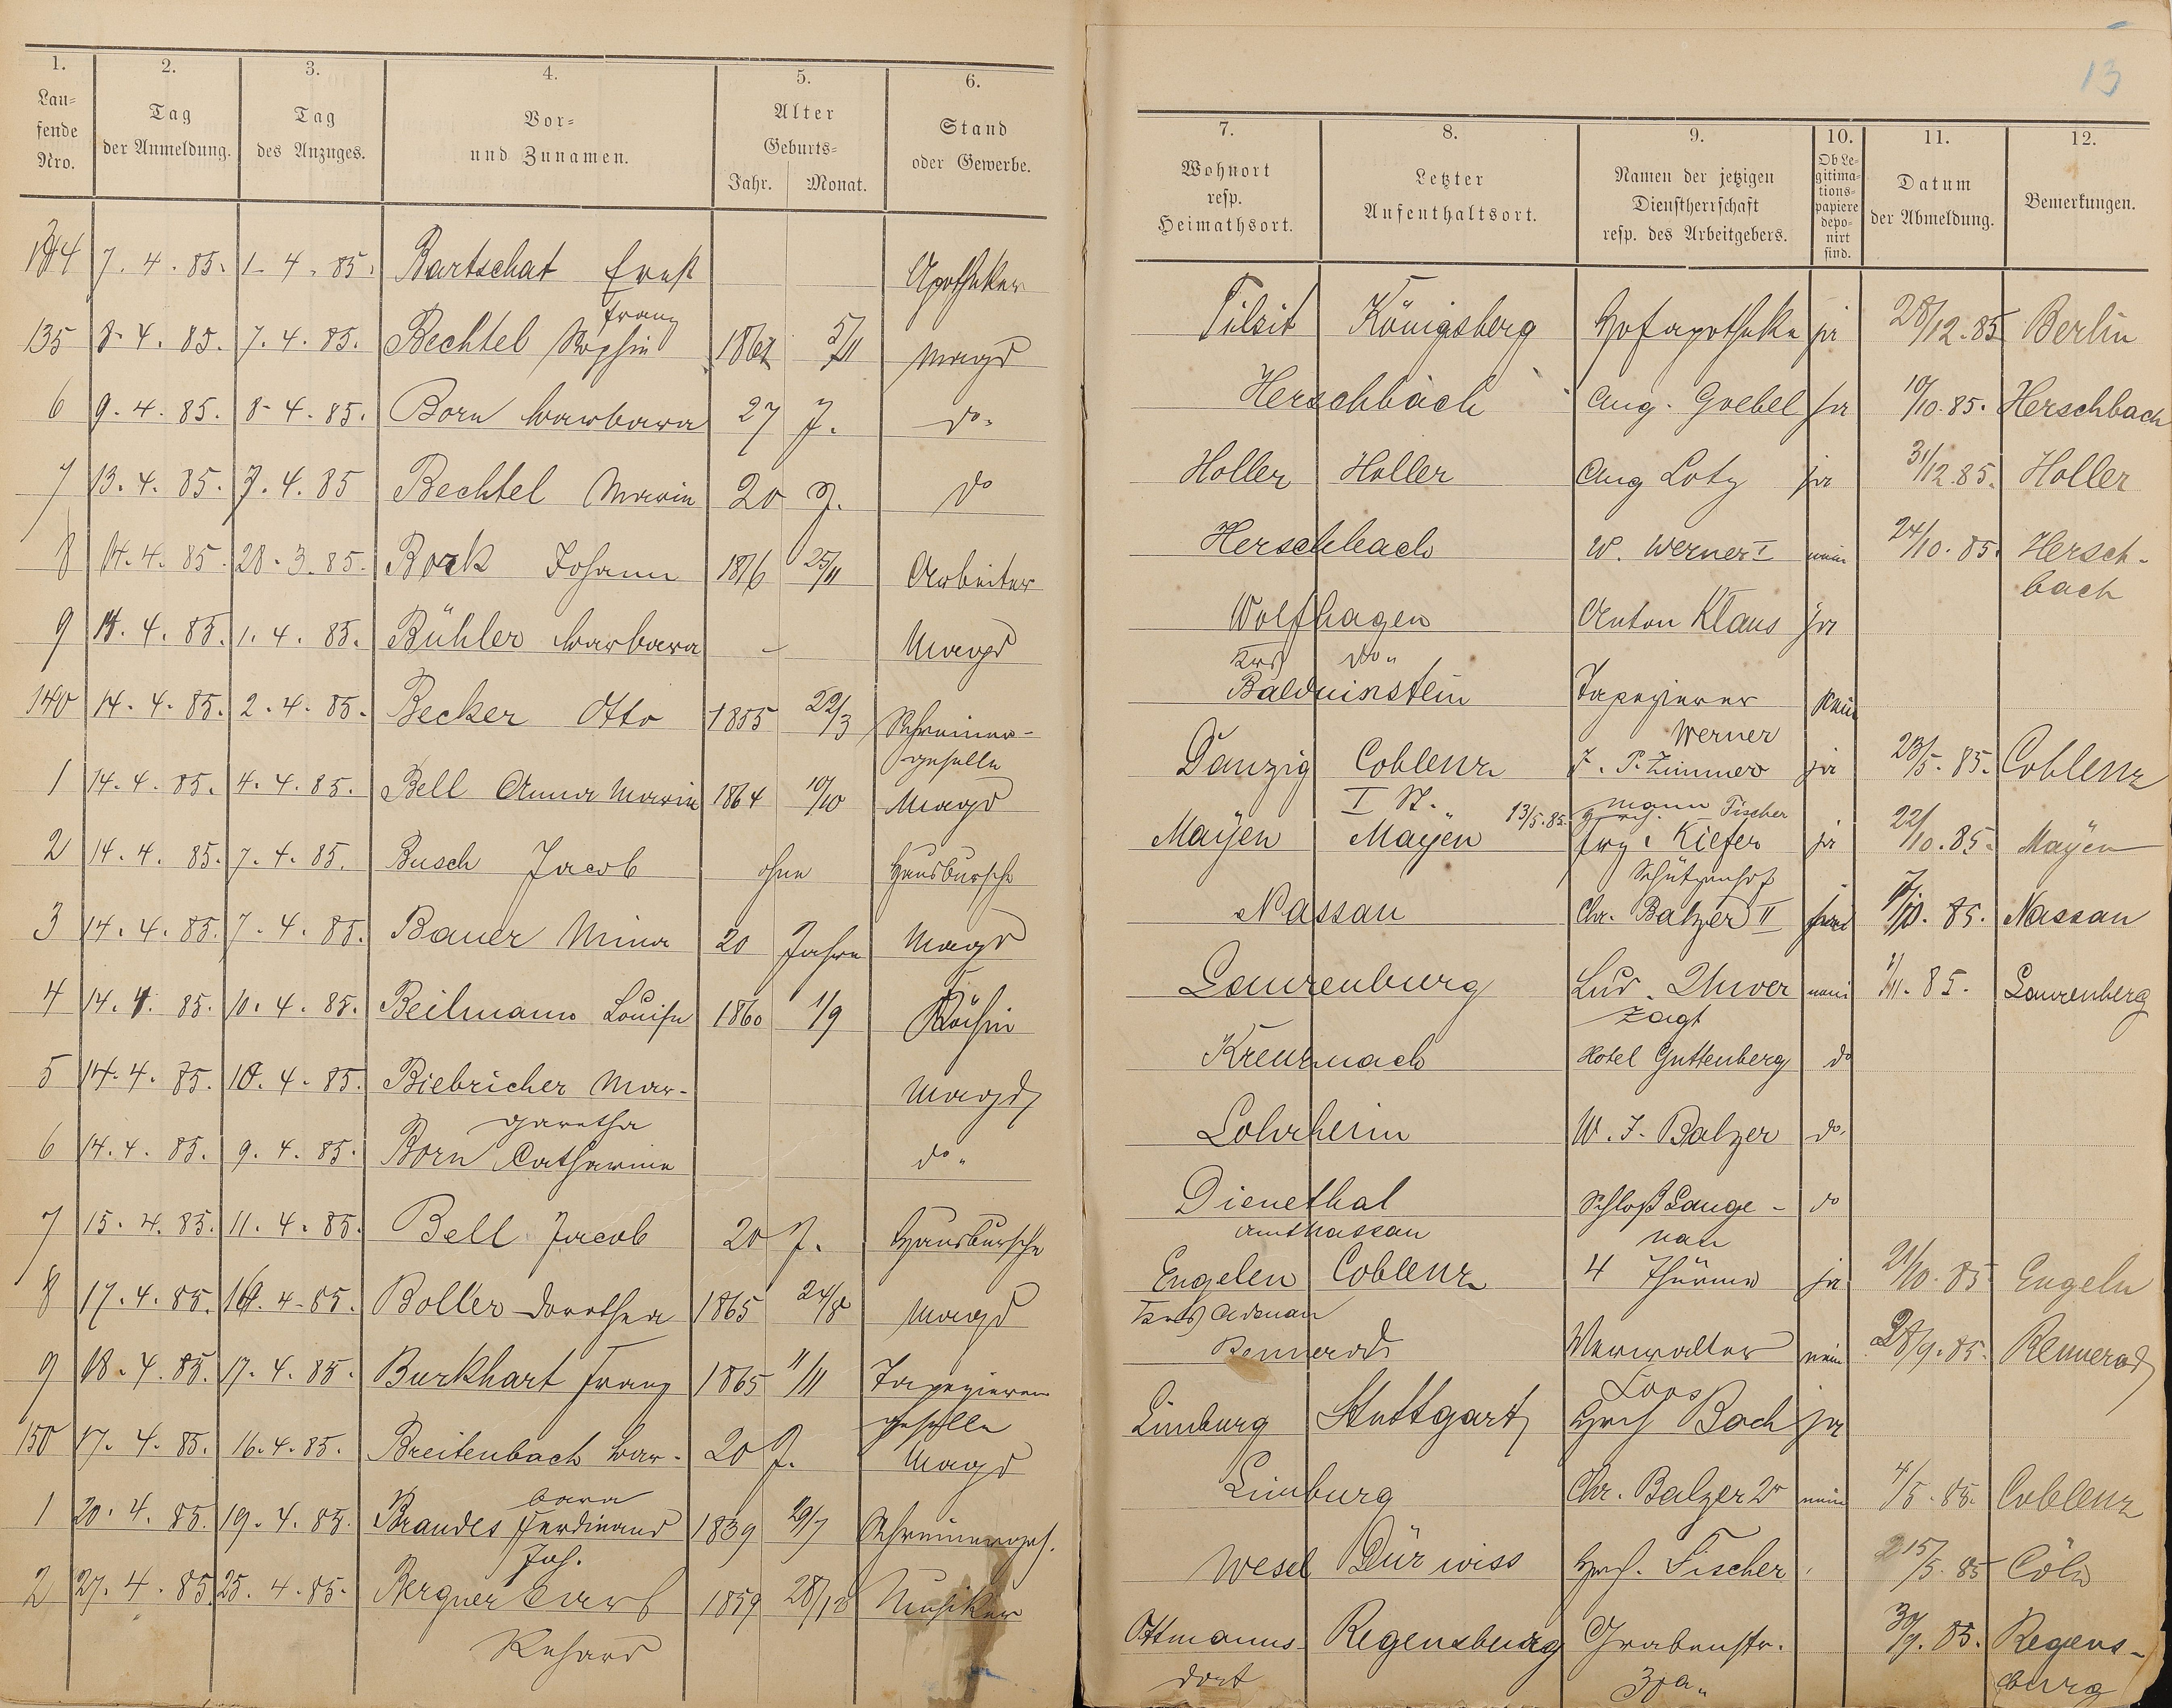 13
1. 2. 3. 4. 5. 6.
Lau-
fende
Nro.
Tag
der Anmeldung.
Tag
des Anzuges.
Vor-
und Zunamen.
Alter
Geburts-
Jahr. Monat.
Stand
oder Gewerbe.
134 7. 4. 85. 1. 4. 85. Bartschat Ernst Apotheker
Franz
135 8. 4. 85. 7. 4. 85. Bechtel Sophie 1867 5/11 Magd
6 9. 4. 85. 8. 4. 85. Born Barbara 27 J. do.
7 13. 4. 85. 7. 4. 85 Bechtel Maria 20 J. do
8 14. 4. 85. 28. 3. 85. Bock Johann 25/11 Arbeiter
9 14. 4. 85. 1. 4. 85. Bühler Barbara - Magd
140 14. 4. 85. 2. 4. 85. Becker Otto 1855 22/3 Schreiner-
geselle
1 14. 4. 85. 4. 4. 85. Bell Anna Maria 1864 10/10 Magd
2 14. 4. 85. 7. 4. 85. Busch Jacob ohne Hausbursche
3 14. 4. 85. 7. 4. 85. Bauer Mina 20 Jahre Magd
4 14. 4. 85. 10. 4. 85. Beilmann Louise 1860 1/9 Köchin
5 14. 4. 85. 10. 4. 85. Biebricher Mar-
garetha Magd
6 14. 4. 85. 9. 4. 85. Born Catharine do.
7 15. 4. 85. 11. 4. 85. Bell Jacob 20 J. Hausbursche
8 17. 4. 85. 4. 85. Boller Dorothea 1865 24/8 Magd
9 18. 4. 85. 17. 4. 85. Burkhart Franz 1865 11/11 Tapezierer
geselle
150 17. 4. 85. 16. 4. 85. Breitenbach Bar-
bara 20 J. Magd
1 20. 4. 85. 19. 4. 85. Brandes Ferdinand 1839 29/7 Schreinerges.
Joh.
2 27. 4. 85. 25. 4. 85. Bergner 1859 Musiker
7. 8. 9. 10. 11. 12.
Wohnort
resp.
Heimathsort.
Letzter
Aufenthaltsort.
Namen der jetzigen
Dienstherrschaft
resp. des Arbeitgebers.
Ob Le-
gitima-
tions-
papiere
depo-
nirt
sind.
Datum
der Abmeldung.
Bemerkungen.
Tilsit Königsberg Hofapotheke ja 28/12. 85 Berlin
Herschbach Aug. Goebel ja 10/10. 85. Herschbach
Holler Holler Aug Lotz ja 31/12 85. Holler
Herschbach W. Werner I nein 24/10. 85. Hersch-
bach
Wolfhagen Anton Klaus ja
do.
Balduinstein Tapezierer
Werner nein
Danzig Coblenz J. P. Zimmer-
mann ja 28/5. 85. Coblenz
I St. 13/5. 85. Fischer
Mayen Mayen Kiefer ja 22/10. 85. Mayen
Schützenhof
Nassau Chr. Balzer II 85. Nassau
Laurenburg Lud. nein 85. Laurenberg
Kreuznach Hotel Guttenberg do
Lohrheim W. J. Balzer do.
Dienethal Schloß Lange-
nau do
Amt Nassau
Engelen Coblenz 4 Thürme ja 21/10. 85 Engeln
Kreis Adenau
Rennerod Verwalter
Loos nein 28/9. 85. Rennerod
Limburg Stuttgart Hch Bach ja
Limburg Chr. Balzer 2r nein 4/5. 85. Coblenz
Wesel Dürwiss Hch. Fischer 15/5. 85 Cöln
Ottmanns-
dorf Regensburg Grabenstr.
30a. 30/9. 85. Regens-
burg